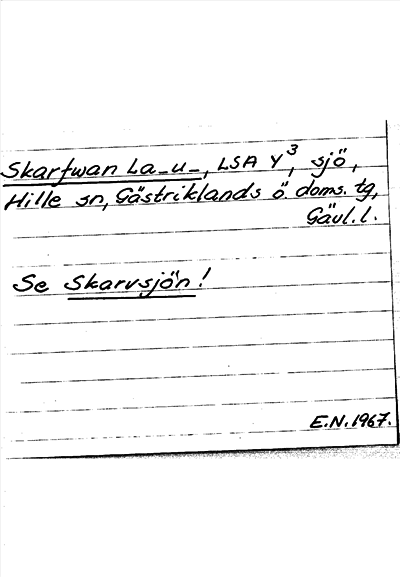 Skarfwan La_u_, LSA Y³, sjö,
Hille sn, Gästriklands ö. doms. tg,
Gävl. l.
Se Skarvsjön!
E.N. 1967.